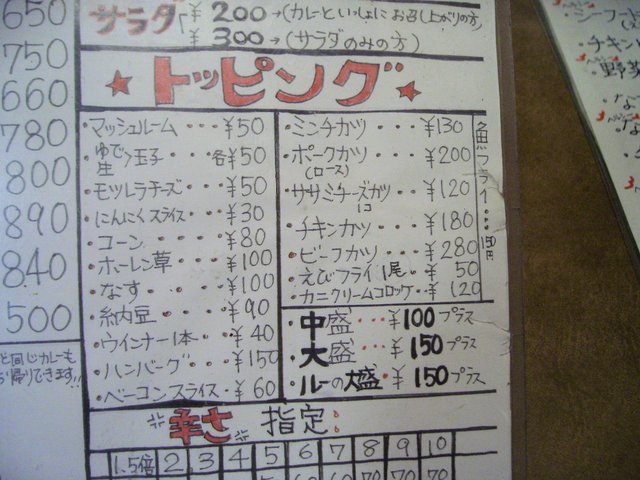 サラダ ¥200→(カレーといっしょにお召し上がりの方)
¥300→(サラダのみの方)
★トッピング★
650
750
660
780
800
890
840
500
と同じカレーも
帰りできます!!
・マッシュルーム・・・¥50
・ゆで 生 玉子・・・各¥50
・モツレラチーズ・・・¥50
・にんにくスライス・・・¥30
・コーン・・・¥80
・ホーレン草・・・¥100
・なす・・・¥100
・納豆・・・¥90
・ウインナー1本・・¥40
・ハンバーグ・・・¥150
・ベーコンスライス・¥60
・ミンチカツ・・・¥130
・ポークカツ(ロース)・・・¥200
・ササミチーズカツ 1コ・・¥120
・チキンカツ・・・¥180
・ビーフカツ・・・¥280
・えびフライ1尾・¥50
・カニクリームコロッケ・¥120
魚フライ・・・150円
・中盛・・・¥100プラス
・大盛・・・¥150プラス
・ルーの大盛・¥150プラス
辛さ指定
1.5倍 2 3 4 5 6 7 8 9 10
60 70 70 70
・シーフ
・チキン
・野菜
・な